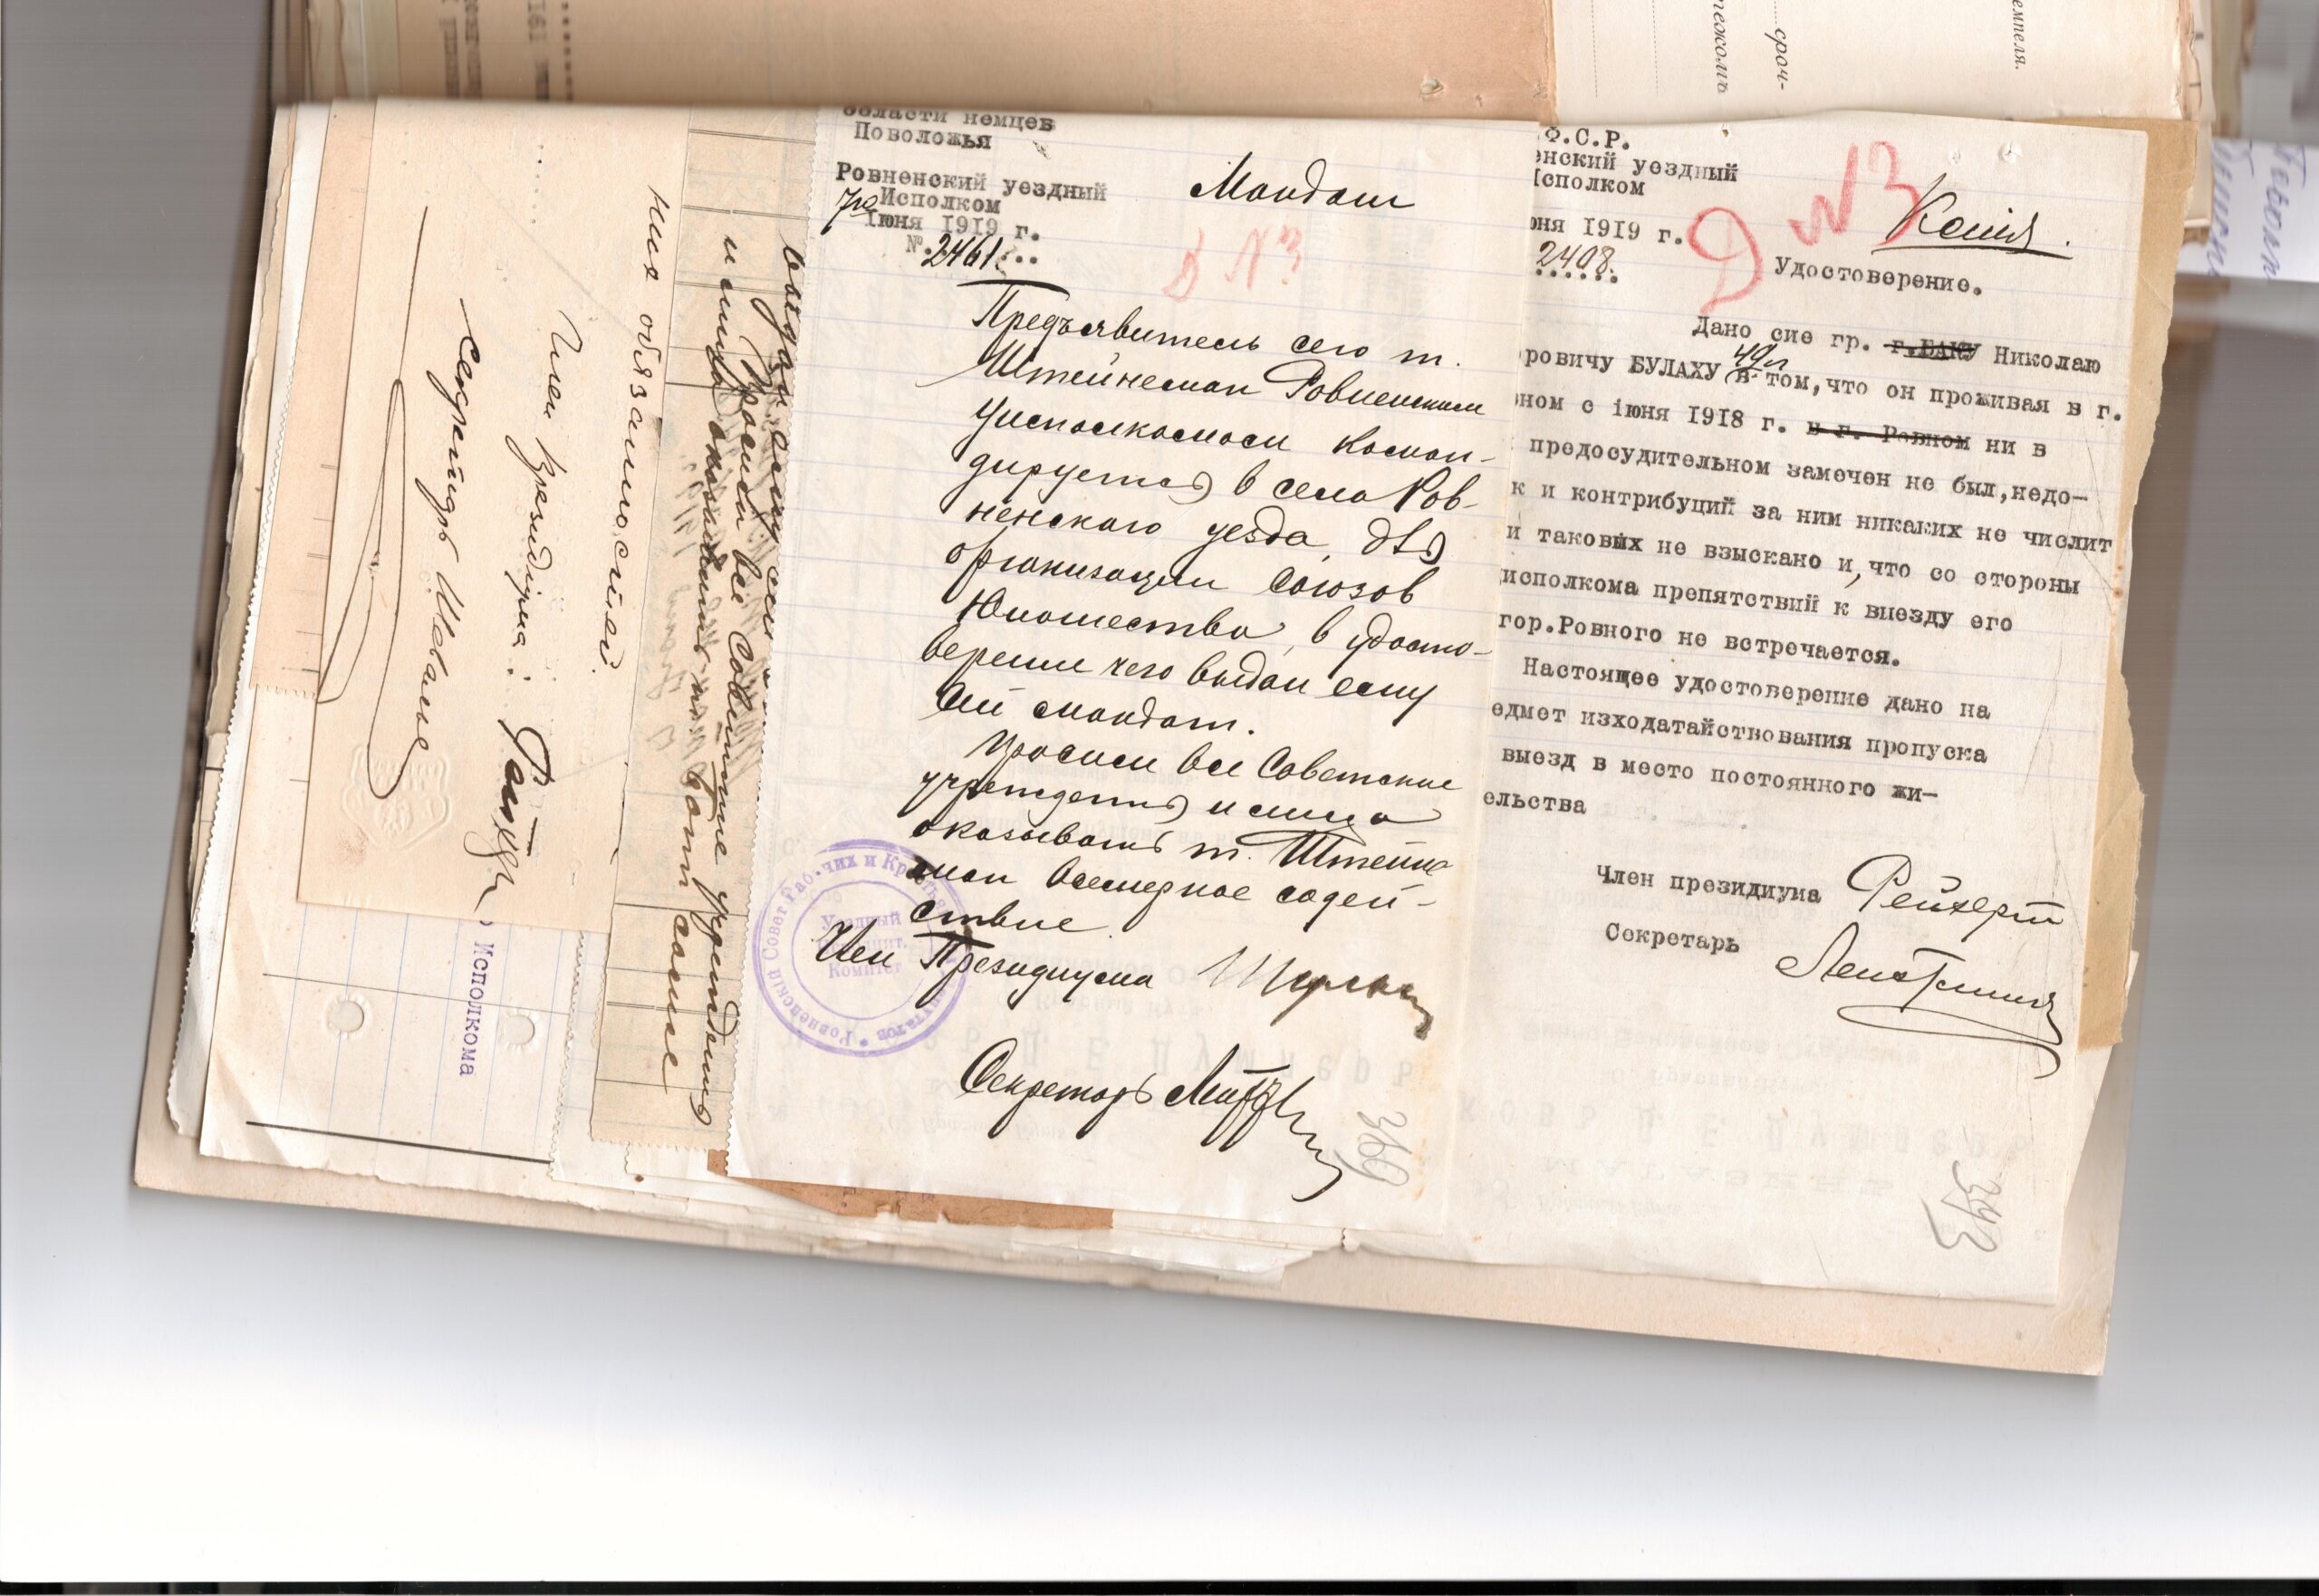 области немцев
Поволожья
Ровненский уездный
Исполком
7го Iюня 1919 г.
№ 2461...
Мандат
Д №3
Предъявитель сего т.
Штейнеман Ровненским
Уисполкомом коман-
дируется в села Ров-
ненского уезда, для
организации Союзов
Юношества, в удосто-
верении чего выдан ему
сей мандат.
Просим все Советские
учреждения и лица
оказывать т. Штейне
ман всемерное содей-
ствие
Член Президиума
Секретарь
369
Ровненский Совет Рабочих и
Уездный
Комитет
Ф.С.Р.
енский уездный
Исполком
юня 1919 г.
2408.
Д №3
Копия.
Удостоверение.
Дано сие гр. г.БАКУ Николаю
ровичу БУЛАХУ 49л в том,что он проживая в г.
вном с iюня 1918 г. в г. Ровном ни в
предосудительном замечен не был,недо-
к и контрибуций за ним никаких не числит
и таковых не взыскано и,что со стороны
исполкома препятствий к выезду его
гор.Ровного не встречается.
Настоящее удостоверение дано на
едмет изходатайствования пропуска
выезд в место постоянного жи-
ельства
Член президиума Рейхерт
Секретарь
373
Просим все Советские учреждения
и лица оказывать
ния обязанностей.
Член Президиума:
Секретарь
Исполкома
сроч-
емпеля.